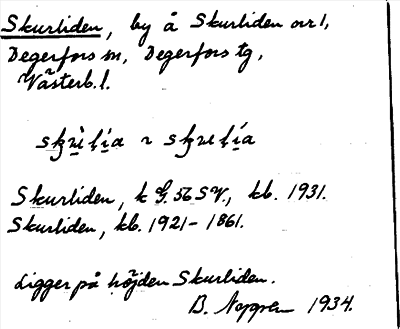 Skurliden, by å Skurliden nr 1,
Degerfors sn, Degerfors tg,
Västerb. l.
Skurliden, k G. 56 SV., kb. 1931.
Skurliden, kb. 1921–1861.
Ligger på höjden Skurliden.
B. 1934.